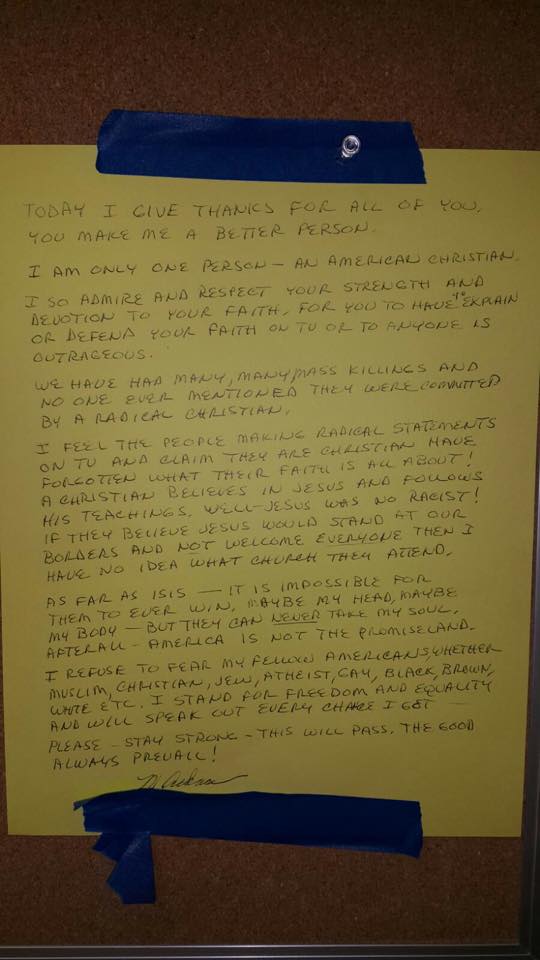 TODAY I GIVE THANKS FOR ALL OF YOU,
YOU MAKE ME A BETTER PERSON.
I AM ONLY ONE PERSON - AN AMERICAN CHRISTIAN.
I SO ADMIRE AND RESPECT YOUR STRENGTH AND
DEVOTION TO YOUR FAITH. FOR YOU TO HAVE TO EXPLAIN
OR DEFEND YOUR FAITH ON TV OR TO ANYONE IS
OUTRAGEOUS.
WE HAVE HAD MANY, MANY MASS KILLINGS AND
NO ONE EVER MENTIONED THEY WERE COMMITTED
BY A RADICAL CHRISTIAN.
I FEEL THE PEOPLE MAKING RADICAL STATEMENTS
ON TV AND CLAIM THEY ARE CHRISTIAN HAVE
FORGOTTEN WHAT THEIR FAITH IS ALL ABOUT!
A CHRISTIAN BELIEVES IN JESUS AND FOLLOWS
HIS TEACHINGS. WELL - JESUS WAS NO RACIST!
IF THEY BELIEVE JESUS WOULD STAND AT OUR
BORDERS AND NOT WELCOME EVERYONE THEN I
HAVE NO IDEA WHAT CHURCH THEY ATTEND.
AS FAR AS ISIS - IT IS IMPOSSIBLE FOR
THEM TO EVER WIN. MAYBE MY HEAD, MAYBE
MY BODY - BUT THEY CAN NEVER TAKE MY SOUL.
AFTERALL - AMERICA IS NOT THE PROMISELAND.
I REFUSE TO FEAR MY FELLOW AMERICANS, WHETHER
MUSLIM, CHRISTIAN, JEW, ATHEIST, GAY, BLACK, BROWN,
WHITE ETC. I STAND FOR FREEDOM AND EQUALITY
AND WILL SPEAK OUT EVERY CHANCE I GET -
PLEASE - STAY STRONG - THIS WILL PASS. THE GOOD
ALWAYS PREVAIL!